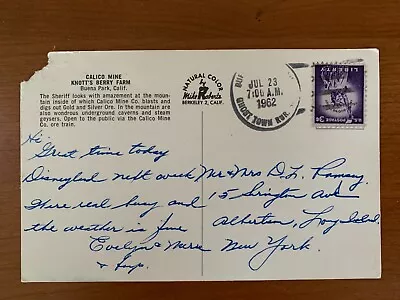 CALICO MINE
KNOTT'S BERRY FARM
Buena Park, Calif.
The Sheriff looks with amazement at the moun-
tain inside of which Calico Mine Co. blasts and
digs out Gold and Silver Ore. In the mountain are
also wondrous underground caverns and steam
geysers. Open to the public via the Calico Mine
Co. ore train.
NATURAL COLOR
by
Mike Roberts
BERKELEY 2, CALIF.
JUL 23
7:00 A.M.
1962
GHOST TOWN RUR.
LIBERTY
U.S. POSTAGE 3¢
Hi,
Great time today
Disneyland next week
There real busy and
the weather is fine
Evelyn & Marie
Mr & Mrs D. L. Ramsay
15 Ave
Albertson, Long Island
New York.